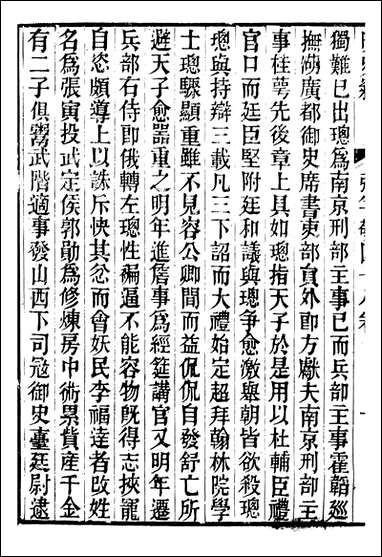 獨難已出璁爲南京刑部主事已而兵部主事霍韜廵
撫湖廣都御史席書吏部員外郎方獻夫南京刑部主
事桂萼先後章上具如璁指天子於是用以杜輔臣禮
官口而廷臣堅附廷和議與璁爭愈激舉朝皆欲殺璁
璁與持辯三載凡三下詔而大禮始定超拜翰林院學
士璁驟顯重雖不見容公卿間而益侃侃自發舒亡所
避天子愈器重之明年進詹事爲經筵講官又明年遷
兵部右侍郎俄轉左璁性褊逼不能容物旣得志挾寵
自恣頗導上以誅斥快其忿而會妖民李福達者攺姓
名爲張寅投武定侯郭勛爲修煉房中術累貲産千金
有二子俱鬻武階適事發山西下司寇御史臺廷尉逮